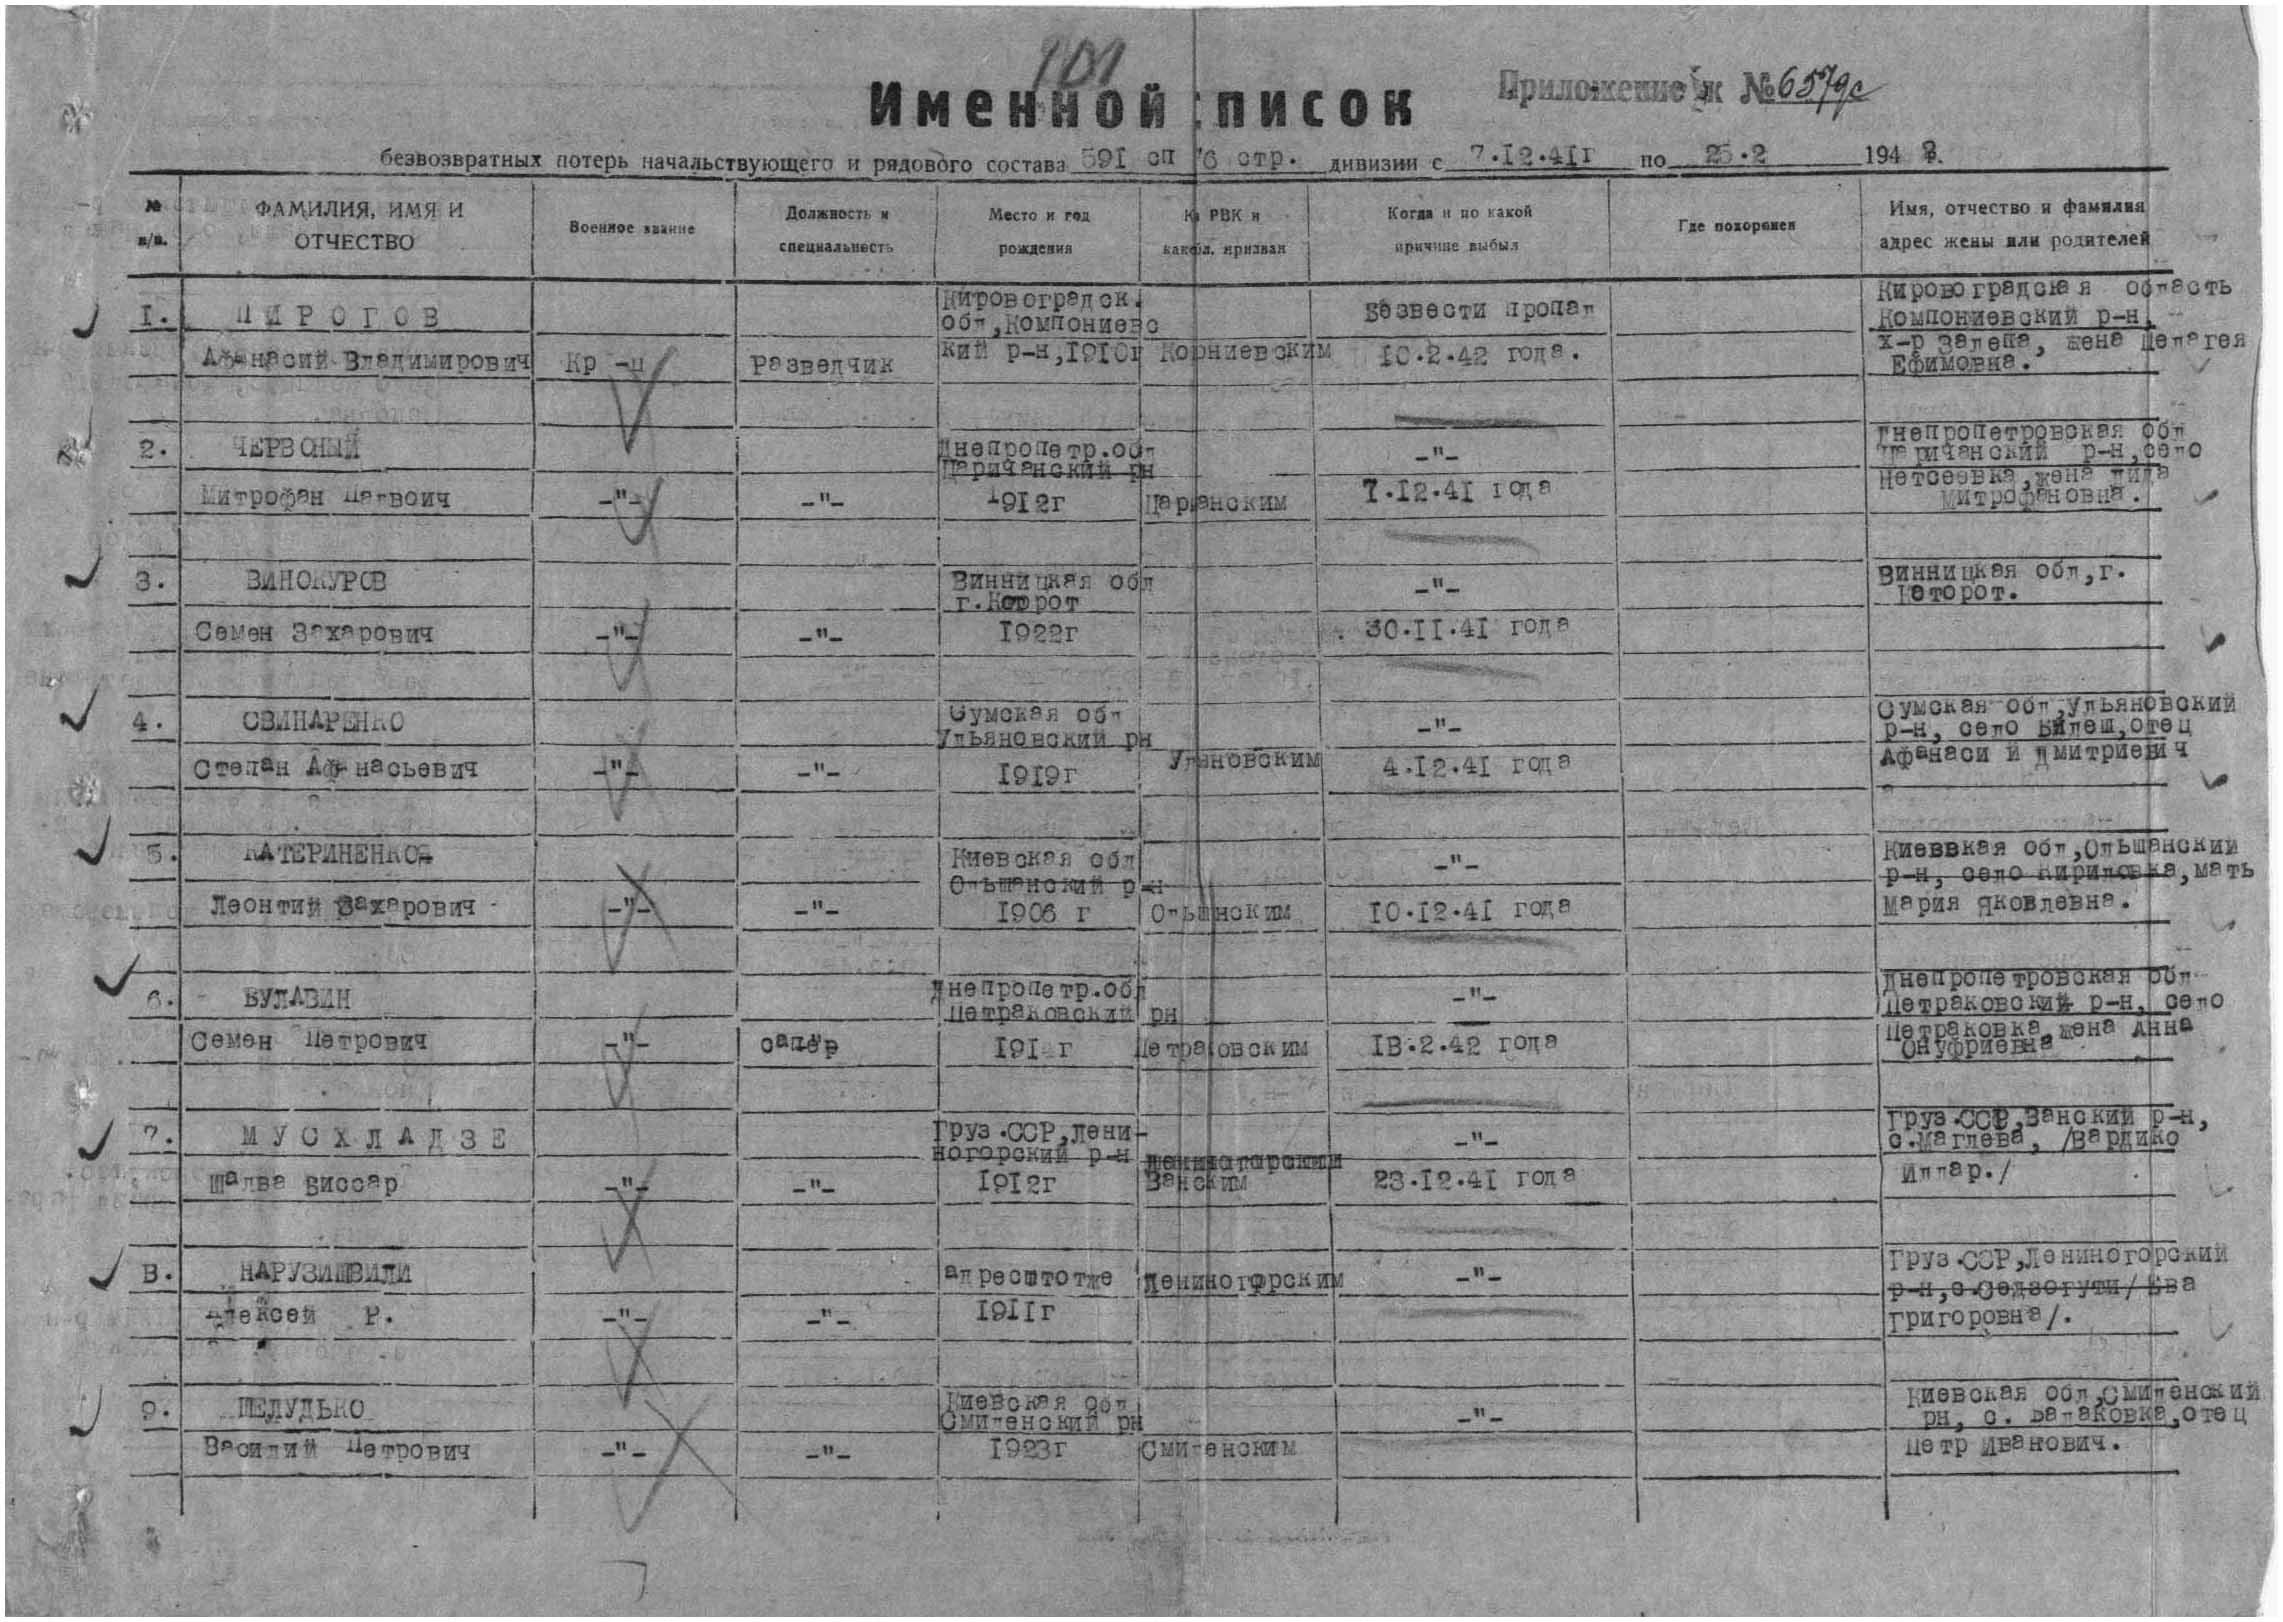 101
Именной список
Приложение к № 6579с
безвозвратных потерь начальствующего и рядового состава 591 сп 76 стр. дивизии с 7.12.41г по 25.2 1942г.
№ п/п.
ФАМИЛИЯ, ИМЯ И ОТЧЕСТВО
Военное звание
Должность и специальность
Место и год рождения
РВК и призван
Когда и по какой причине выбыл
Где похоронен
Имя, отчество и фамилия адрес жены или родителей
1. ПИРОГОВ
Афанасий Владимирович
Кр-ц
Разведчик
Кировоградск.
обл,Компониевс
кий р-н,1910г
Корниевским
Безвести пропал
10.2.42 года.
Кировоградская область
Компониевский р-н,
х-р Залепа, жена Пелагея
Ефимовна.
2. ЧЕРВОНЫЙ
Митрофан
-"-
-"-
Днепропетр.обл
Царичанский рн
1912г
-"-
7.12.41 года
Днепропетровская обл
Царичанский р-н,село
жена Лида
Митрофановна.
3. ВИНОКУРОВ
Семен Захарович
-"-
-"-
Винницкая обл
г.
1922г
-"-
30.11.41 года
Винницкая обл,г.
4. СВИНАРЕНКО
Степан Афанасьевич
-"-
-"-
Сумская обл
Ульяновский рн
1919г
Уляновским
-"-
4.12.41 года
Сумская обл,Ульяновский
р-н, село Вилеш,отец
Афанаси й Дмитриевич
5. КАТЕРИНЕНКО
Леонтий Захарович
-"-
-"-
Киевская обл
Ольшанский р-н
1906 г
Ольшанским
-"-
10.12.41 года
Киеввкая обл,Ольшанский
р-н, село Кириловка,мать
Мария Яковлевна.
6. БУЛАВИН
Семен Петрович
-"-
сапер
Днепропетр.обл
Петраковский рн
Петраковским
-"-
18.2.42 года
Днепропетровская обл
Петраковский р-н, село
Петраковка,жена Анна
Онуфриевна
7. МУСХЛАДЗЕ
Шалва Виссар
-"-
-"-
Груз.ССР,Лени-
ногорский р-н
1912г
Лениногорским
Ванским
-"-
23.12.41 года
Груз.ССР,Ванский р-н,
с.Маглева, /Вардико
Иллар./
8. НАРУЗИШВИЛИ
Алексей Р.
-"-
-"-
адресштотже
1911г
Лениногорским
-"-
Груз.ССР,Лениногорский
р-н,с.Седзогути/Ева
Григоровна/.
9. ШЕЛУДЬКО
Василий Петрович
-"-
-"-
Киевская обл
Смиленский рн
1923г
Смиленским
-"-
Киевская обл,Смиленский
рн, с. Балаковка,отец
Петр Иванович.